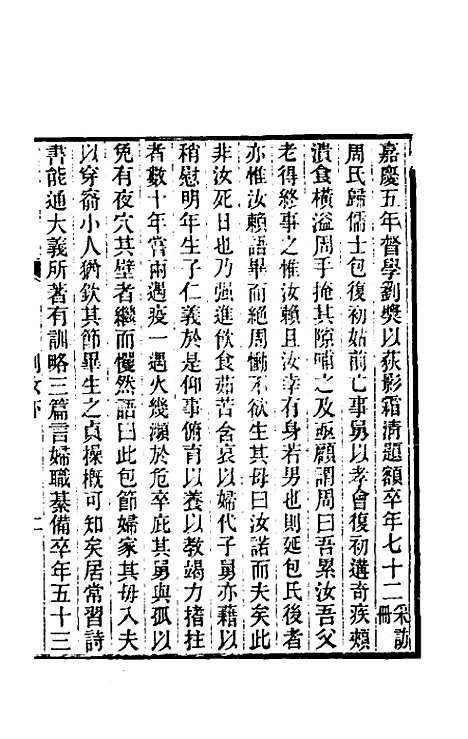 嘉慶五年督學劉奬以荻影霜清題額卒年七十二采訪冊
周氏歸儒士包復初姑前亡事舅以孝會復初遘奇疾頰
潰食橫溢周手掩其隙哺之及亟顧謂周曰吾累汝吾父
老得終事之惟汝賴且汝幸有身若男也則延包氏後者
亦惟汝賴語畢而絕周慟不欲生其母曰汝諾而夫矣此
非汝死日也乃强進飲食茹苦含哀以婦代子舅亦藉以
稍慰明年生子仁義於是仰事俯育以養以教竭力搘柱
者數十年嘗兩遇疫一遇火幾瀕於危卒庇其舅與孤以
免有夜穴其壁者繼而戄然語曰此包節婦家其毋入夫
以穿窬小人猶欽其節畢生之貞操概可知矣居常習詩
書能通大義所著有訓略三篇言婦職綦備卒年五十三
列女下
二